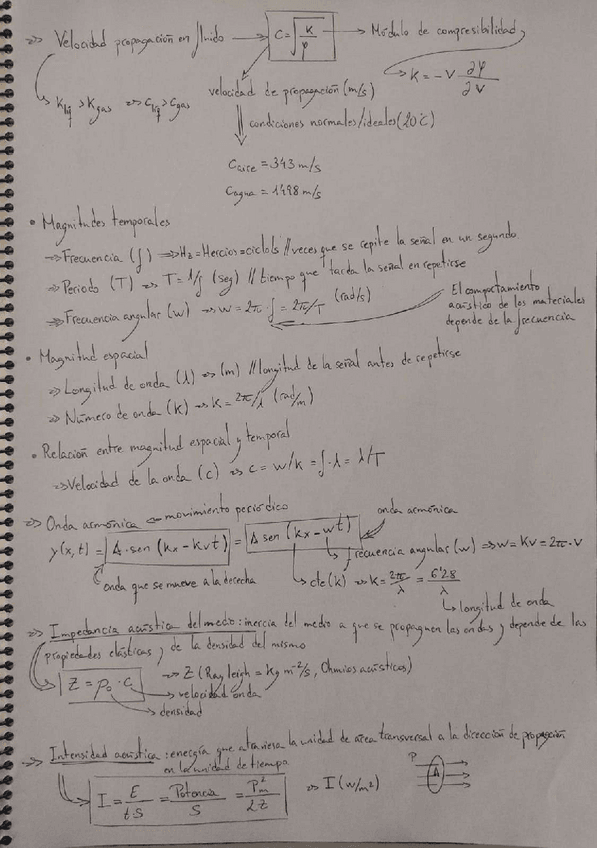 =>> Velocidad propagación en fluido → c = √(k/ρ) → Módulo de compresibilidad
→ K = -V ∂P/∂V
→ Kliq > Kgas =>> Cliq > Cgas
velocidad de propagación (m/s)
condiciones normales/ideales (20ºC)
Caire = 343 m/s
Cagua = 1498 m/s
• Magnitudes temporales
=>> Frecuencia (f) =>> Hz = Hercios = ciclo/s // veces que se repite la señal en un segundo
=>> Periodo (T) =>> T = 1/f (seg) // tiempo que tarda la señal en repetirse
=>> Frecuencia angular (w) =>> w = 2π·f = 2π/T (rad/s)
El comportamiento
acústico de los materiales
depende de la frecuencia
• Magnitud espacial
=>> Longitud de onda (λ) =>> (m) // longitud de la señal antes de repetirse
=>> Número de onda (K) =>> K = 2π/λ (rad/m)
• Relación entre magnitud espacial y temporal
=>> Velocidad de la onda (c) =>> c = w/k = f·λ = λ/T
=>> Onda armónica ← movimiento periódico
onda armónica
y(x,t) = A·sen (kx-kvt) = A sen (kx-wt)
frecuencia angular (w) => w = Kv = 2π·V
onda que se mueve a la derecha
→ cte (k) =>> K = 2π/λ = 6'28/λ
→ longitud de onda
=>> Impedancia acústica del medio: inercia del medio a que se propaguen las ondas y depende de las
propiedades elásticas y de la densidad del mismo
Z = ρ₀·c =>> Z (Rayleigh = Kg m⁻²/s, Ohmios acústicos)
→ velocidad onda
→ densidad
=>> Intensidad acústica: energía que atraviesa la unidad de área transversal a la dirección de propagación
en la unidad de tiempo
I = E/tS = Potencia/S = Pm²/2Z =>> I (w/m²)
P
A